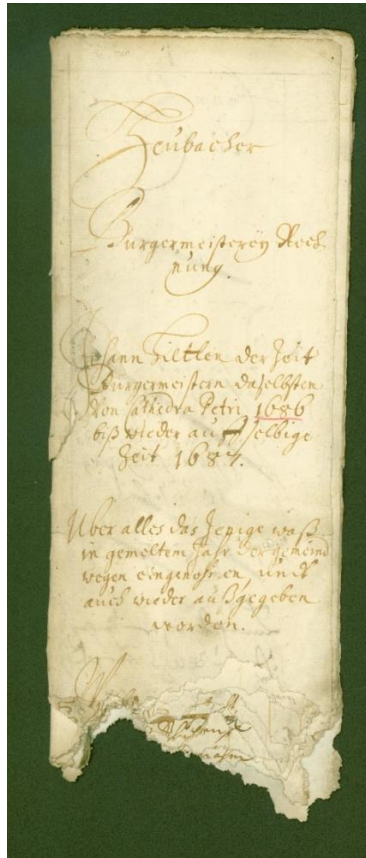 Heubacher
Burgermeisterey Rech
nung.
Johann Tiltlen der Zeit
Burgermeistern daselbsten
von Cathedra Petri 1686
biß wieder auff selbige
Zeit 1687.
Über alles das Jenige waß
in gemeltem Jahr der gemeind
wegen eingenohmen, undt
auch wieder außgegeben
worden.